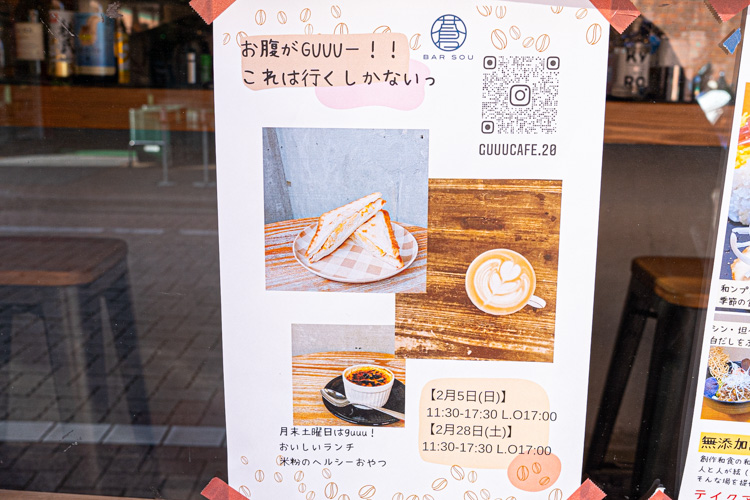 お腹がGUUUー！！
これは行くしかないっ
BAR SOU
GUUUCAFE.20
月末土曜日はguuu！
おいしいランチ
米粉のヘルシーおやつ
【2月5日(日)】
11:30-17:30 L.O17:00
【2月28日(土)】
11:30-17:30 L.O17:00
和ンプ
季節の
シン・坦
白だしを
無添加
創作和食の和
人と人が結（
そんな場を提
テイクア